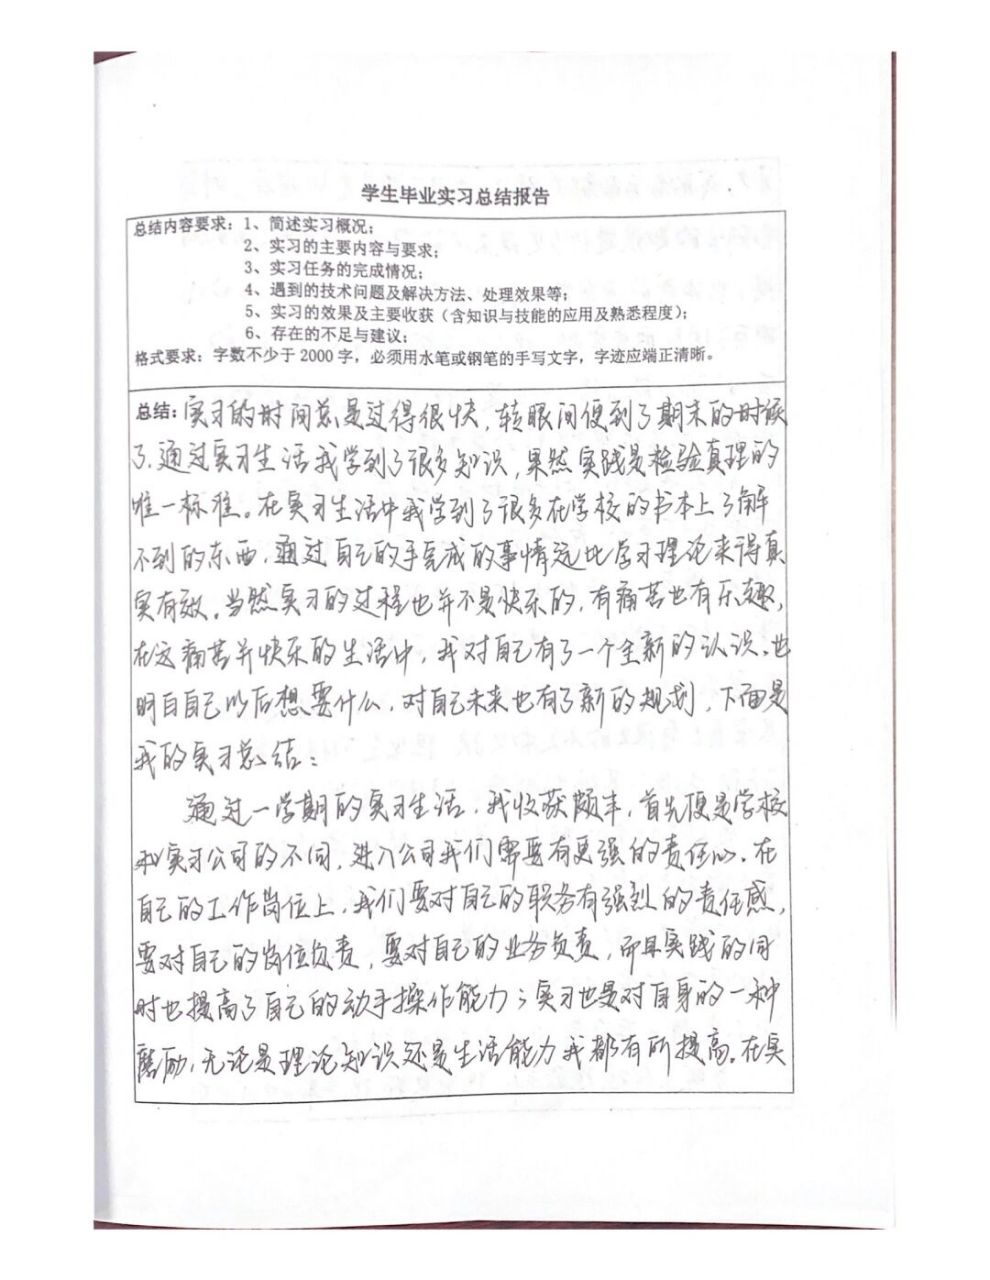 学生毕业实习总结报告
总结内容要求：1、简述实习概况；
2、实习的主要内容与要求；
3、实习任务的完成情况；
4、遇到的技术问题及解决方法、处理效果等；
5、实习的效果及主要收获（含知识与技能的应用及熟悉程度）；
6、存在的不足与建议；
格式要求：字数不少于 2000 字，必须用水笔或钢笔的手写文字，字迹应端正清晰。
总结：实习的时间总是过得很快，转眼间便到了期末的时候
了，通过实习生活我学到了很多知识，果然实践是检验真理的
唯一标准。在实习生活中我学到了很多在学校的书本上了解
不到的东西，通过自己的手完成的事情远比学习理论来得真
实有效。当然实习的过程也并不是快乐的，有痛苦也有乐趣，
在这痛苦并快乐的生活中，我对自己有了一个全新的认识，也
明白自己以后想要什么，对自己未来也有了新的规划，下面是
我的实习总结：
通过一学期的实习生活，我收获颇丰，首先便是学校
和实习公司的不同，进入公司我们需要有更强的责任心，在
自己的工作岗位上，我们要对自己的职务有强烈的责任感，
要对自己的岗位负责，要对自己的业务负责，而且实践的同
时也提高了自己的动手操作能力；实习也是对自身的一种
磨励，无论是理论知识还是生活能力我都有所提高。在实